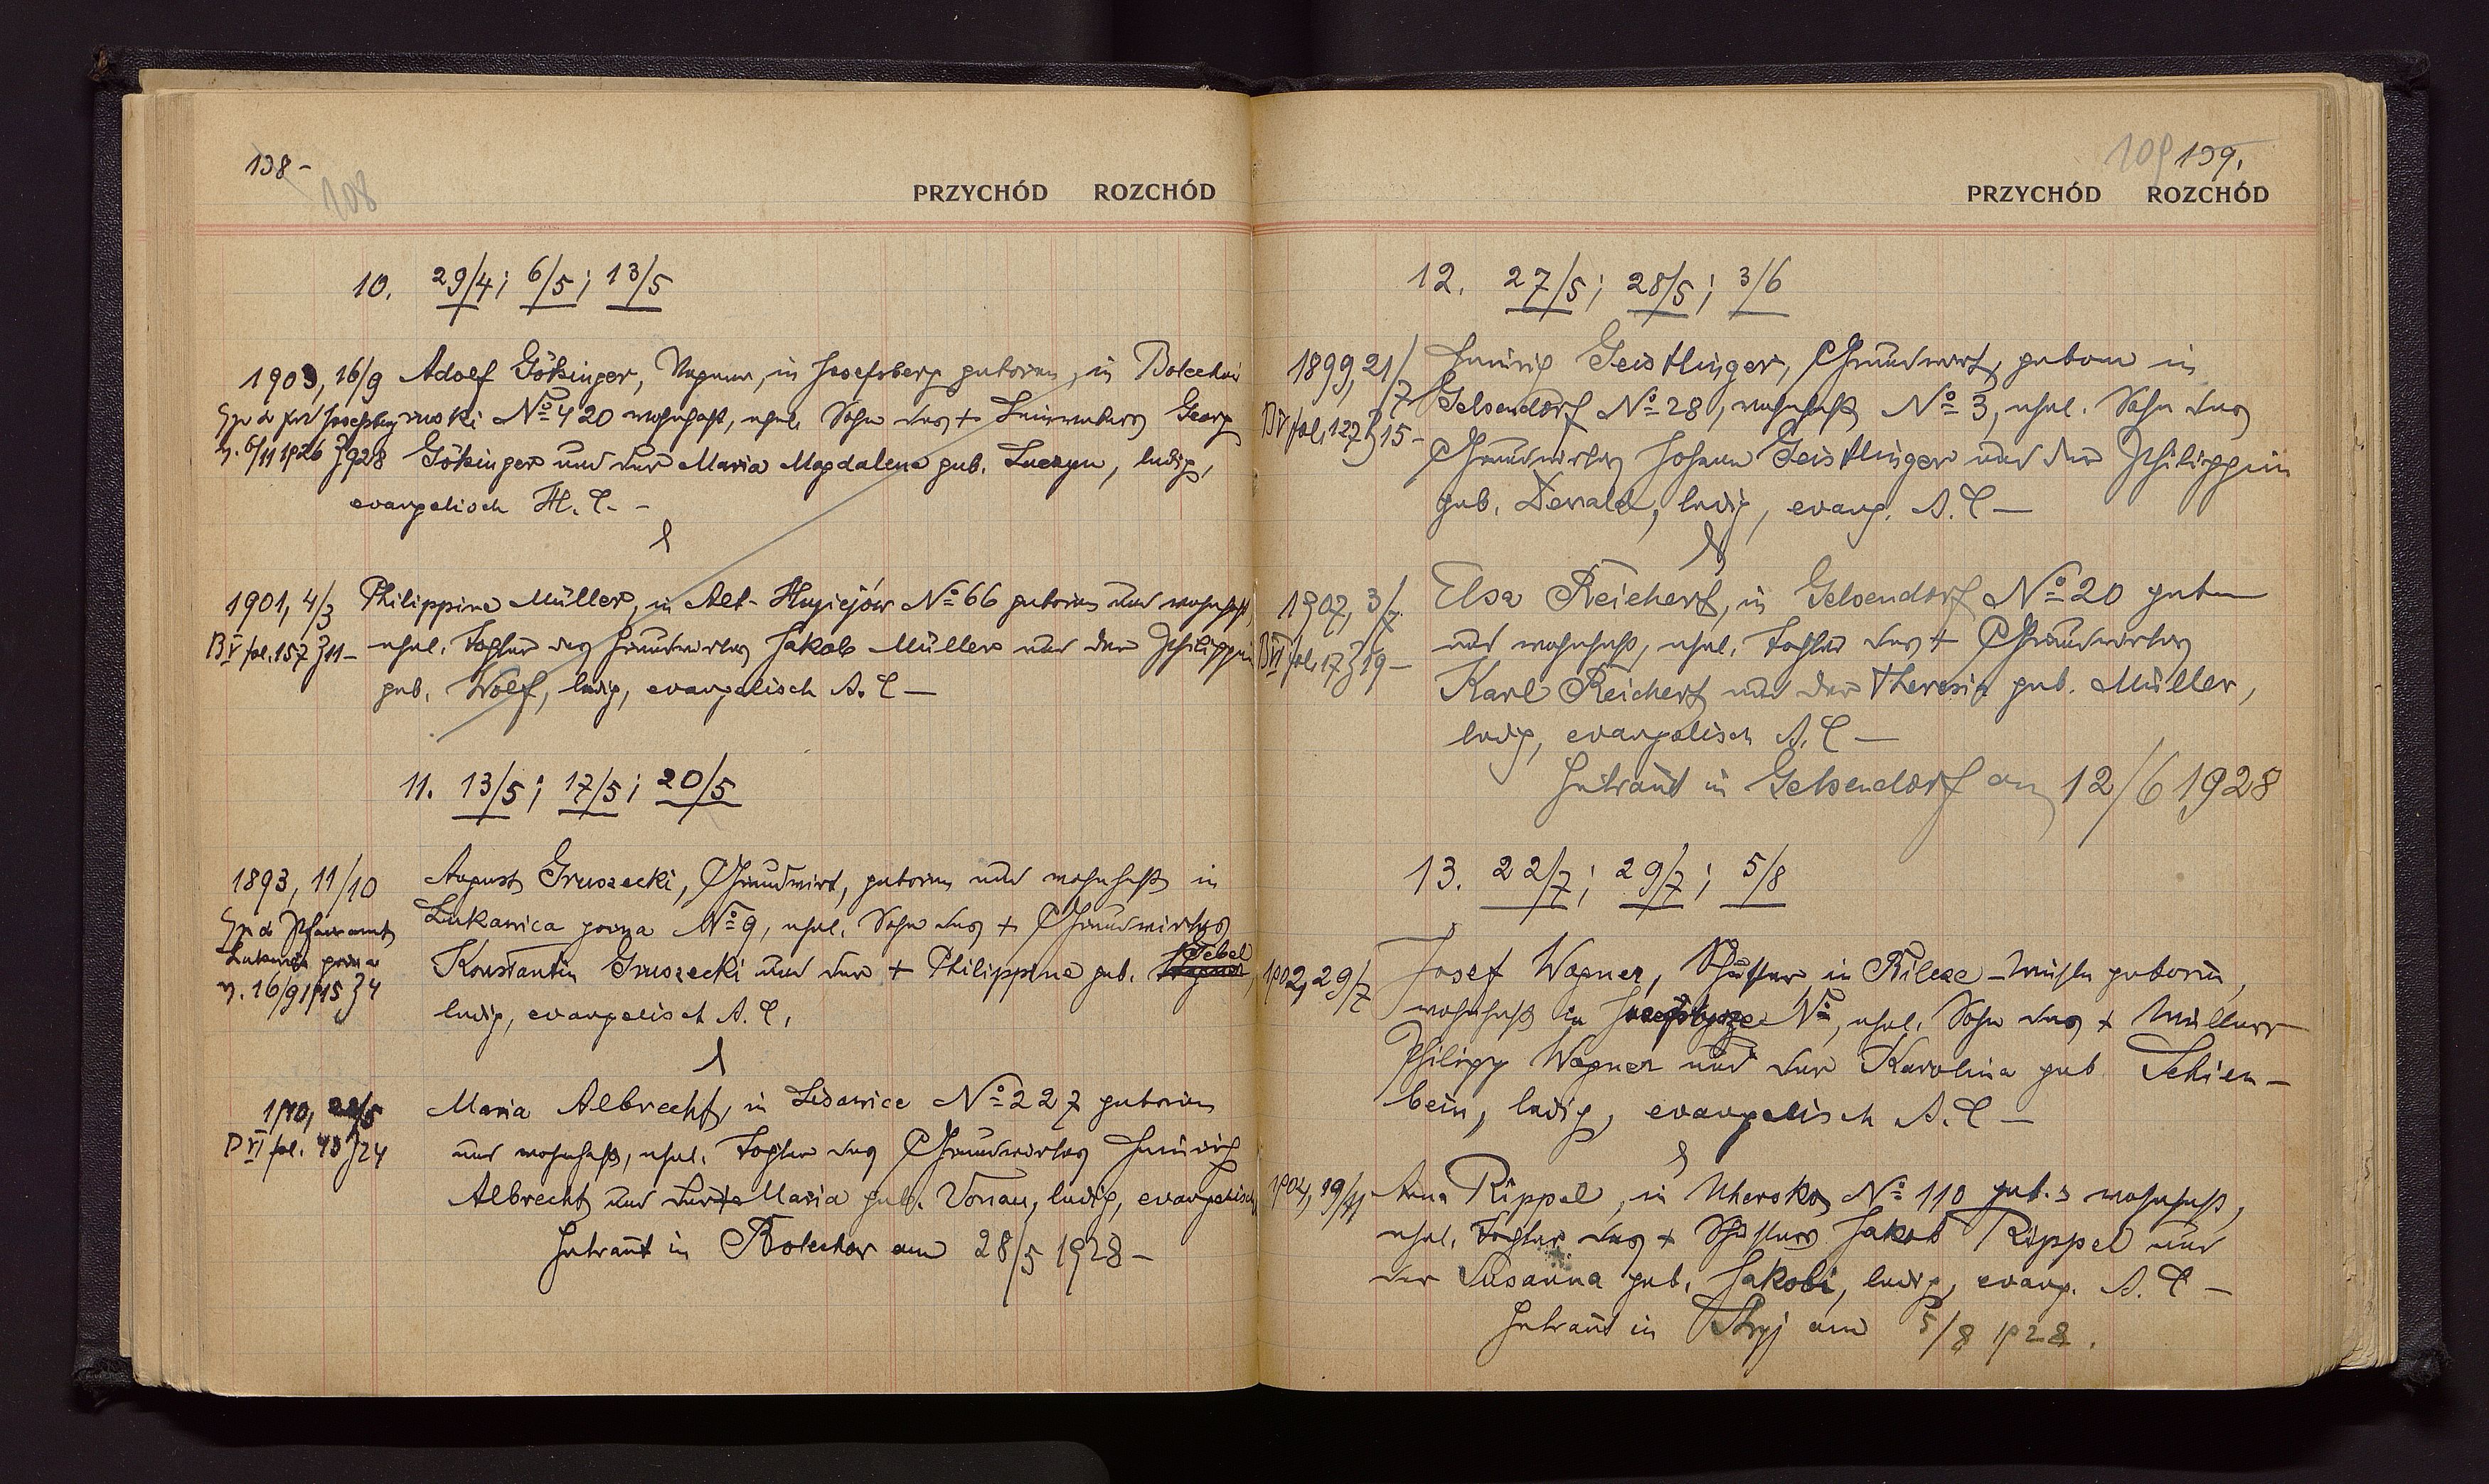 138-
108
PRZYCHÓD ROZCHÓD
10. 29/4; 6/5; 13/5
1903, 16/9 Adolf Götzinger, Wagner, in Josefsberg geboren, in Bolechów
ruski № 420 wohnhaft, ehel. Sohn des + Georg
v. 6/11 1926 Z 928 Götzinger und der Maria Magdalena geb. ledig,
evangelisch H. C. -
&
1901, 4/3 Philippine Müller, in Alt-Hujcjów № 66 geboren und wohnhaft,
B V fol. 157 Z 11- ehel. Tochter des Grundwirtes Jakob Müller und der Philippine
geb. Wolf, ledig, evangelisch A. C -
11. 13/5; 17/5; 20/5
1893, 11/10 August Gruszecki, Grundwirt, geboren und wohnhaft in
Lukawica gorna № 9, ehel. Sohn des + Grundwirtes
Konstantin Gruszecki und der + Philippine geb. Tebel
v. 16/9 1915 Z 4
ledig, evangelisch A. C,
&
1910, 22/5 Maria Albrecht, in Lisowice № 227 geboren
B VI fol. 43 Z 24 und wohnhaft, ehel. Tochter des Grundwirtes Heinrich
Albrecht und der + Maria geb. Vonau, ledig, evangelisch
Getraut in Bolechow am 28/5 1928 -
109 139.
PRZYCHÓD ROZCHÓD
12. 27/5; 28/5; 3/6
1899, 21/7 Heinrich Geistlinger, Grundwirt, geboren in
B V fol. 127 Z 15- Gelsendorf № 28, wohnhaft № 3, ehel. Sohn des
Grundwirtes Johann Geistlinger und der Philippine
geb. Dewald, ledig, evang. A. C -
&
1907, 3/7. Elsa Reichert, in Gelsendorf № 20 geboren
B VI fol. 17 Z 19- und wohnhaft, ehel. Tochter des + Grundwirtes
Karl Reichert und der Theresia geb. Müller,
ledig, evangelisch A. C -
Getraut in Gelsendorf am 12/6 1928
13. 22/7; 29/7; 5/8
1902, 29/7 Josef Wagner, Schuster, in Rilcze-Mühle geboren,
wohnhaft in №, ehel. Sohn des + Müllers
Philipp Wagner und der Karolina geb. Schien-
bein, ledig, evangelisch A. C -
&
1904, 19/11 Anna Rippel, in Uhersko № 110 geb. wohnhaft,
ehel. Tochter des + Schusters Jakob Rippel und
der Susanna geb. Jakobi, ledig, evang. A. C -
Getraut in Stryj am 5/8 1928.